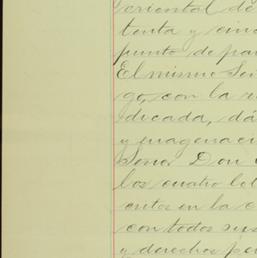 oriental de
tenta y cinco
punto de par
El mismo Señ
go, con la
dicada, dá
y enagena en
Señor Don
los cuatro lot
critos en la e
con todos sus
y derechos per